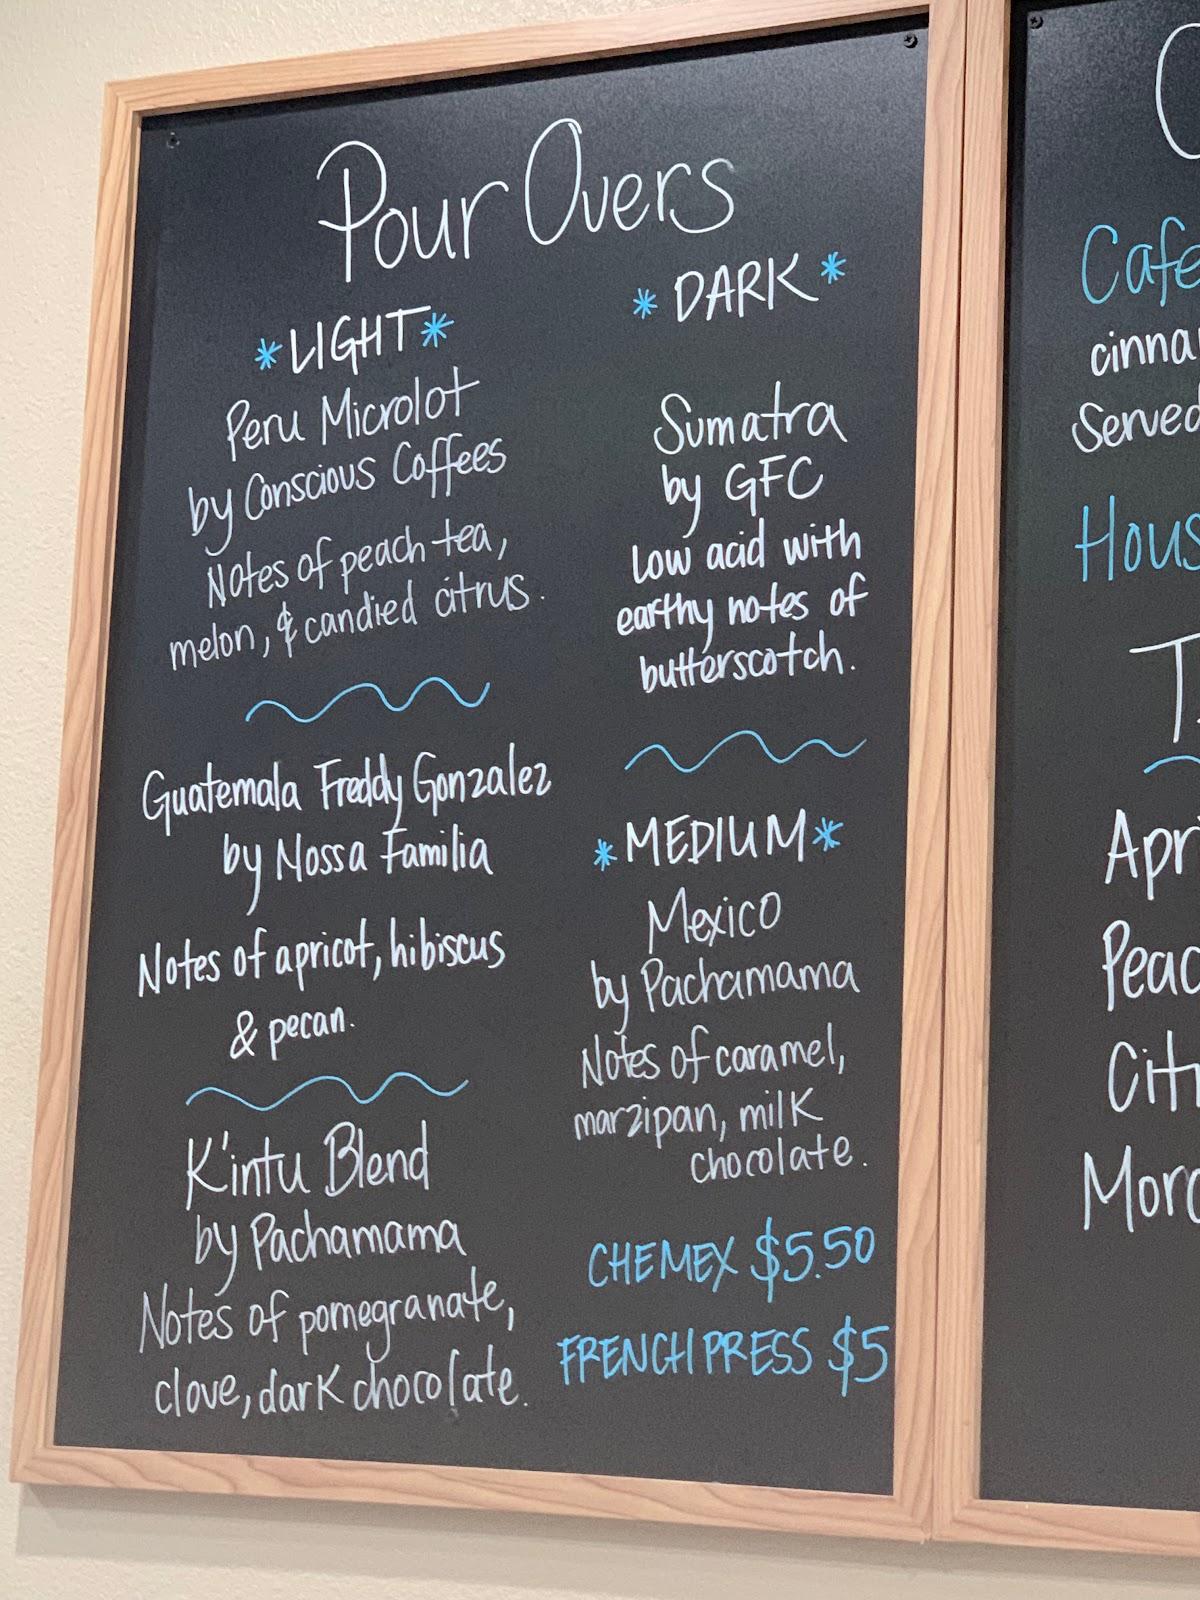 Pour Overs
*LIGHT*
Peru Microlot
by Conscious Coffees
Notes of peach tea,
melon, & candied citrus.
Guatemala Freddy Gonzalez
by Nossa Familia
Notes of apricot, hibiscus
& pecan.
K'intu Blend
by Pachamama
Notes of pomegranate,
clove, dark chocolate.
* DARK *
Sumatra
by GFC
Low acid with
earthy notes of
butterscotch.
*MEDIUM*
Mexico
by Pachamama
Notes of caramel,
marzipan, milk
chocolate.
CHEMEX $5.50
FRENCH PRESS $5
Cafe
cinna
Served
Hous
T
Apr
Peac
Cit
Moro